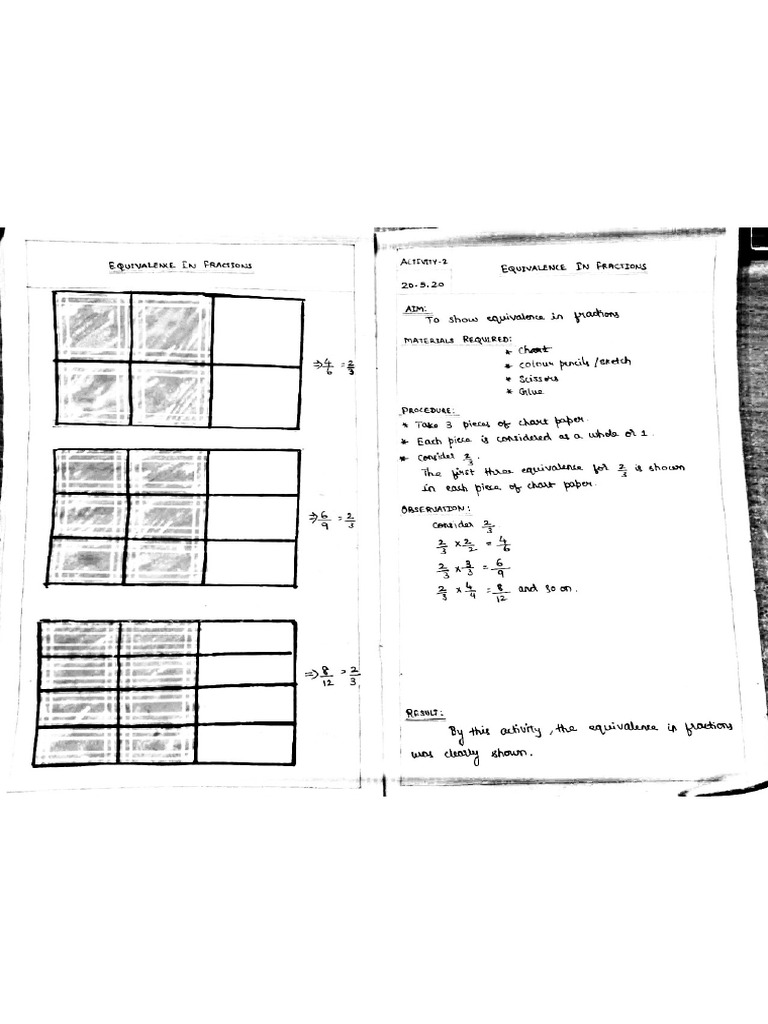 EQUIVALENCE IN FRACTIONS
⇒ 4/6 = 2/3
⇒ 6/9 = 2/3
⇒ 8/12 = 2/3
ACTIVITY-2
EQUIVALENCE IN FRACTIONS
20.5.20
AIM:
To show equivalence in fractions
MATERIALS REQUIRED:
* Chart
* Colour pencils/sketch
* Scissors
* Glue
PROCEDURE:
* Take 3 pieces of chart paper.
* Each piece is considered as a whole or 1.
* Consider 2/3.
The first three equivalence for 2/3 is shown
in each piece of chart paper.
OBSERVATION:
Consider 2/3
2/3 × 2/2 = 4/6
2/3 × 3/3 = 6/9
2/3 × 4/4 = 8/12 and so on.
RESULT:
By this activity, the equivalence in fractions
was clearly shown.